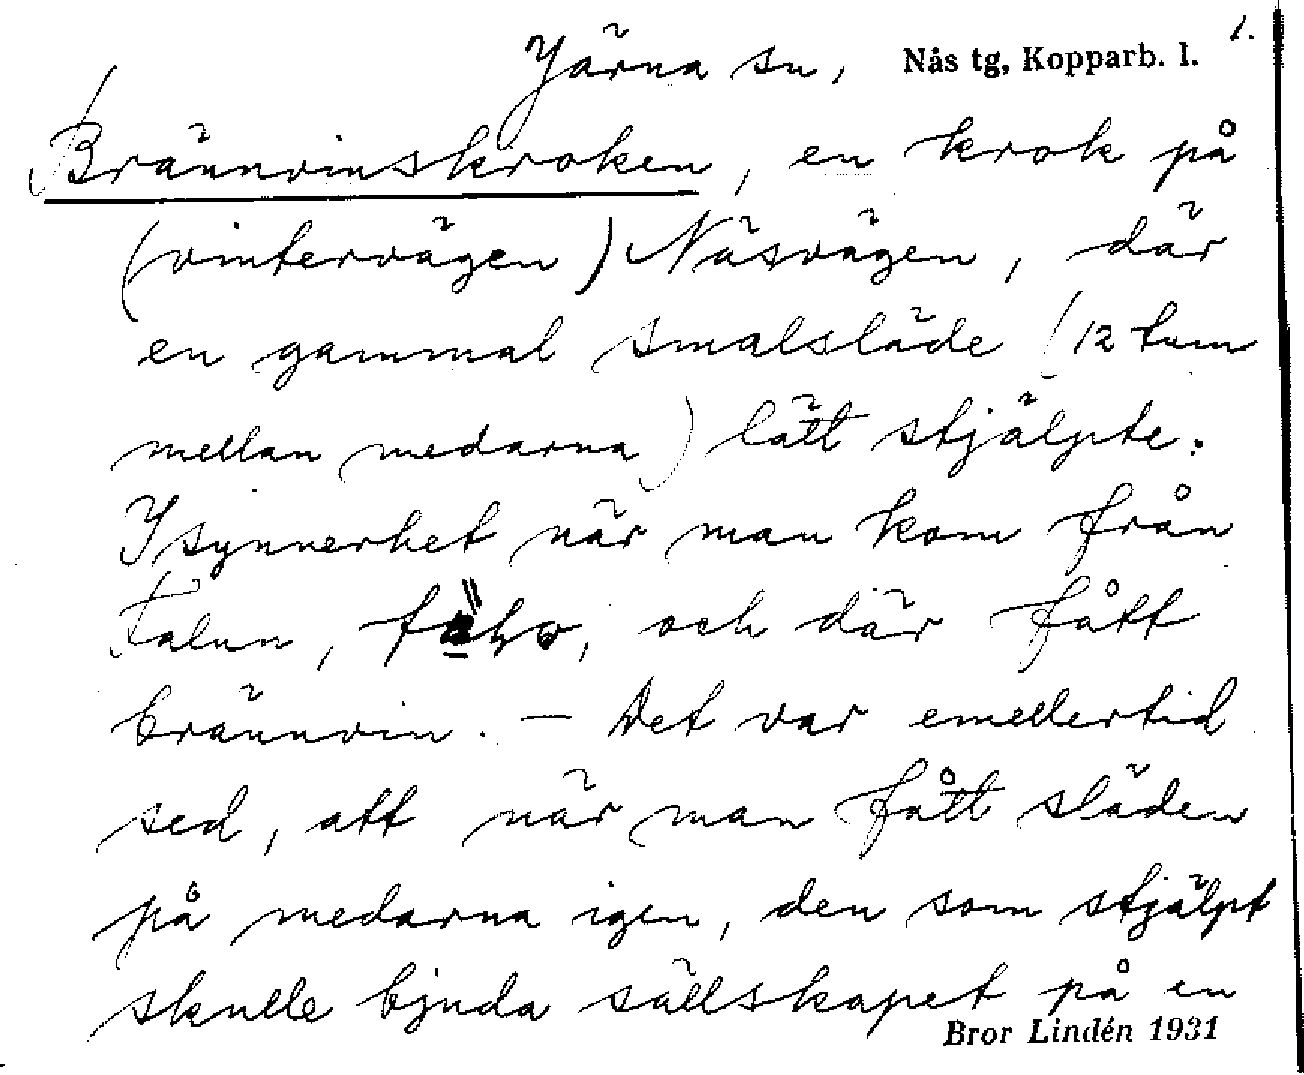 Järna sn, Nås tg, Kopparb. l. 1.
Brännvinskroken, en krok på
(vintervägen) Näsvägen, där
en gammal smalsläde (12 tum
mellan medarna) lätt stjälpte.
I synnerhet när man kom från
Falun, och där fått
brännvin. — Det var emellertid
sed, att när man fått släden
på medarna igen, den som stjälpt
skulle bjuda sällskapet på en
Bror Lindén 1931